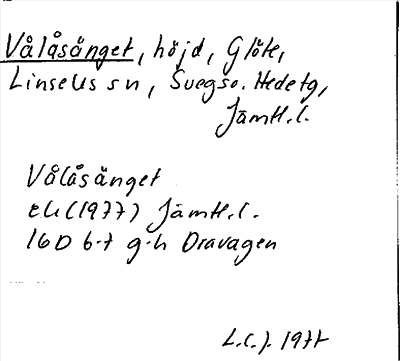 Vålåsänget, höjd, Glöte,
Linsells sn, Svegs o. Hede tg,
Jämtl.l.
Vålåsänget
Ek (1977) Jämtl.l.
16D 6-7 g-h Dravagen
L.C.J. 1977